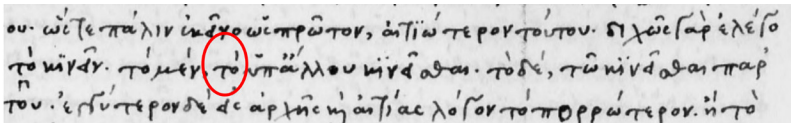 ου. ὥστε πάλιν ἐκεῖνο ὡς πρῶτον, αἰτιώτερον τούτου. διχῶς γὰρ ἐλέγετο
τὸ κινεῖν. τὸ μέν, τὸ ὑπ' ἄλλου κινεῖσθαι. τὸ δέ, τῶ κινεῖσθαι παρ'
δεύτερον δὲ ἀρχῆς καὶ αἰτίας λόγον τὸ πορρώτερον. ἢ τὸ